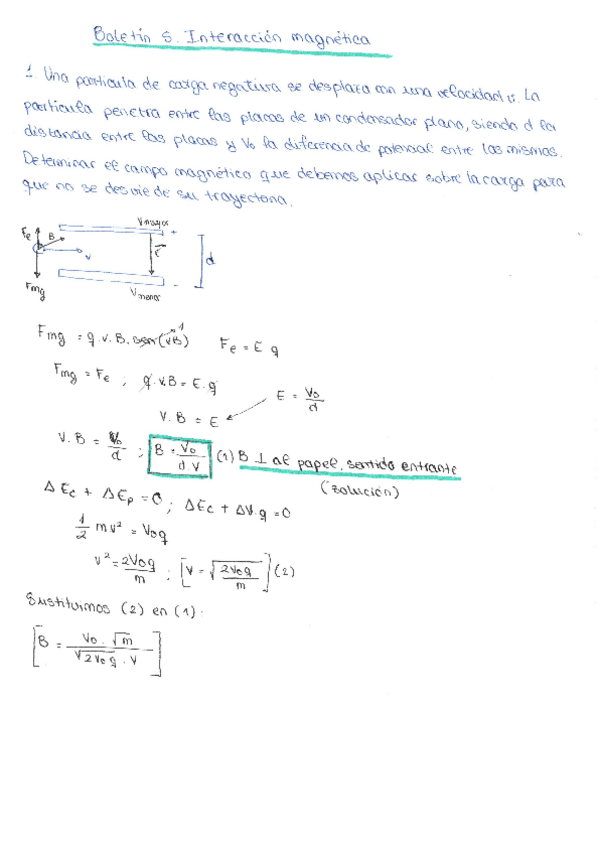 Boletín 5. Interacción magnética
1. Una partícula de carga negativa se desplaza con una velocidad v. La
partícula penetra entre las placas de un condensador plano, siendo d la
distancia entre las placas y V₀ la diferencia de potencial entre las mismas.
Determinar el campo magnético que debemos aplicar sobre la carga para
que no se desvíe de su trayectoria.
Vmayor +
Fe B
v E d
Fmg
Vmenor
Fmg = q.v.B. sen(vB) 1 Fe = E q
Fmg = Fe ; q.v.B = E.q
E = V₀/d
V.B = E
V.B = V₀/d ; B = V₀/d.V (1) B ⊥ al papel, sentido entrante
(solución)
ΔEc + ΔEp = 0 ; ΔEc + ΔV.q = 0
1/2 mv² = V₀q
v² = 2V₀q/m ; [V = √2V₀q/m] (2)
Sustituimos (2) en (1):
[B = V₀.√m/√2V₀q . V]